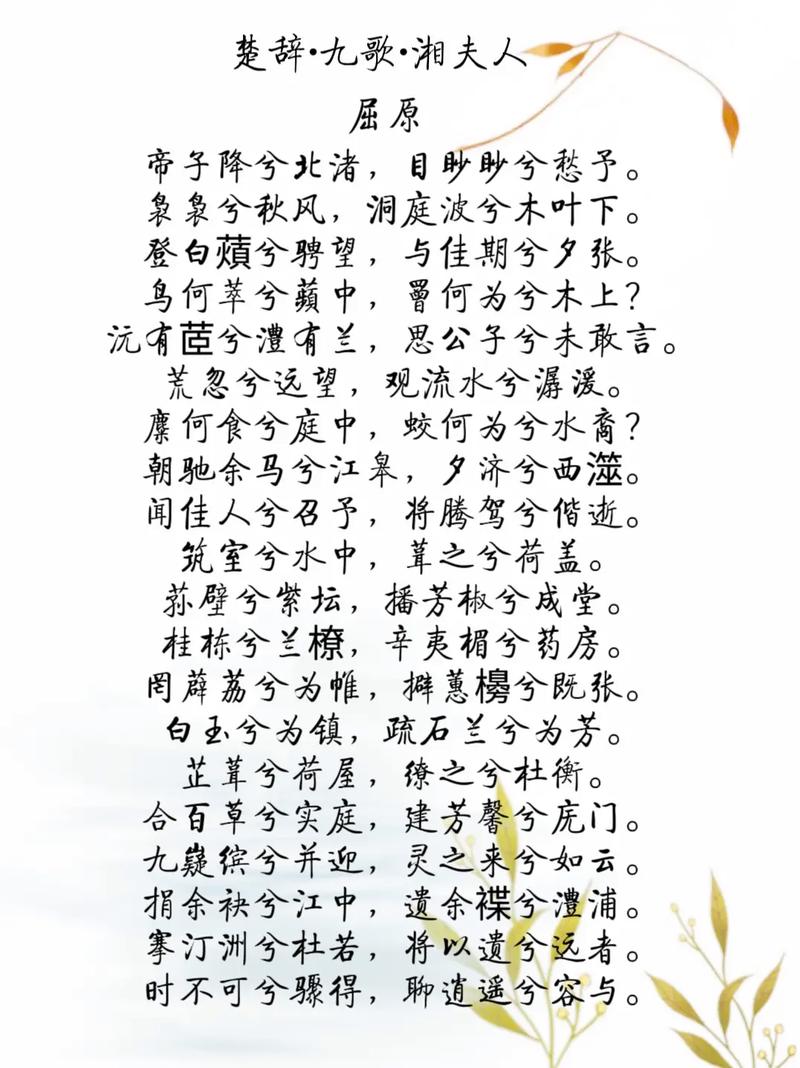 楚辞•九歌•湘夫人
屈原
帝子降兮北渚，目眇眇兮愁予。
袅袅兮秋风，洞庭波兮木叶下。
登白薠兮骋望，与佳期兮夕张。
鸟何萃兮蘋中，罾何为兮木上？
沅有茝兮澧有兰，思公子兮未敢言。
荒忽兮远望，观流水兮潺湲。
麋何食兮庭中，蛟何为兮水裔？
朝驰余马兮江皋，夕济兮西澨。
闻佳人兮召予，将腾驾兮偕逝。
筑室兮水中，葺之兮荷盖。
荪壁兮紫坛，播芳椒兮成堂。
桂栋兮兰橑，辛夷楣兮药房。
罔薜荔兮为帷，擗蕙櫋兮既张。
白玉兮为镇，疏石兰兮为芳。
芷葺兮荷屋，缭之兮杜衡。
合百草兮实庭，建芳馨兮庑门。
九嶷缤兮并迎，灵之来兮如云。
捐余袂兮江中，遗余褋兮澧浦。
搴汀洲兮杜若，将以遗兮远者。
时不可兮骤得，聊逍遥兮容与。